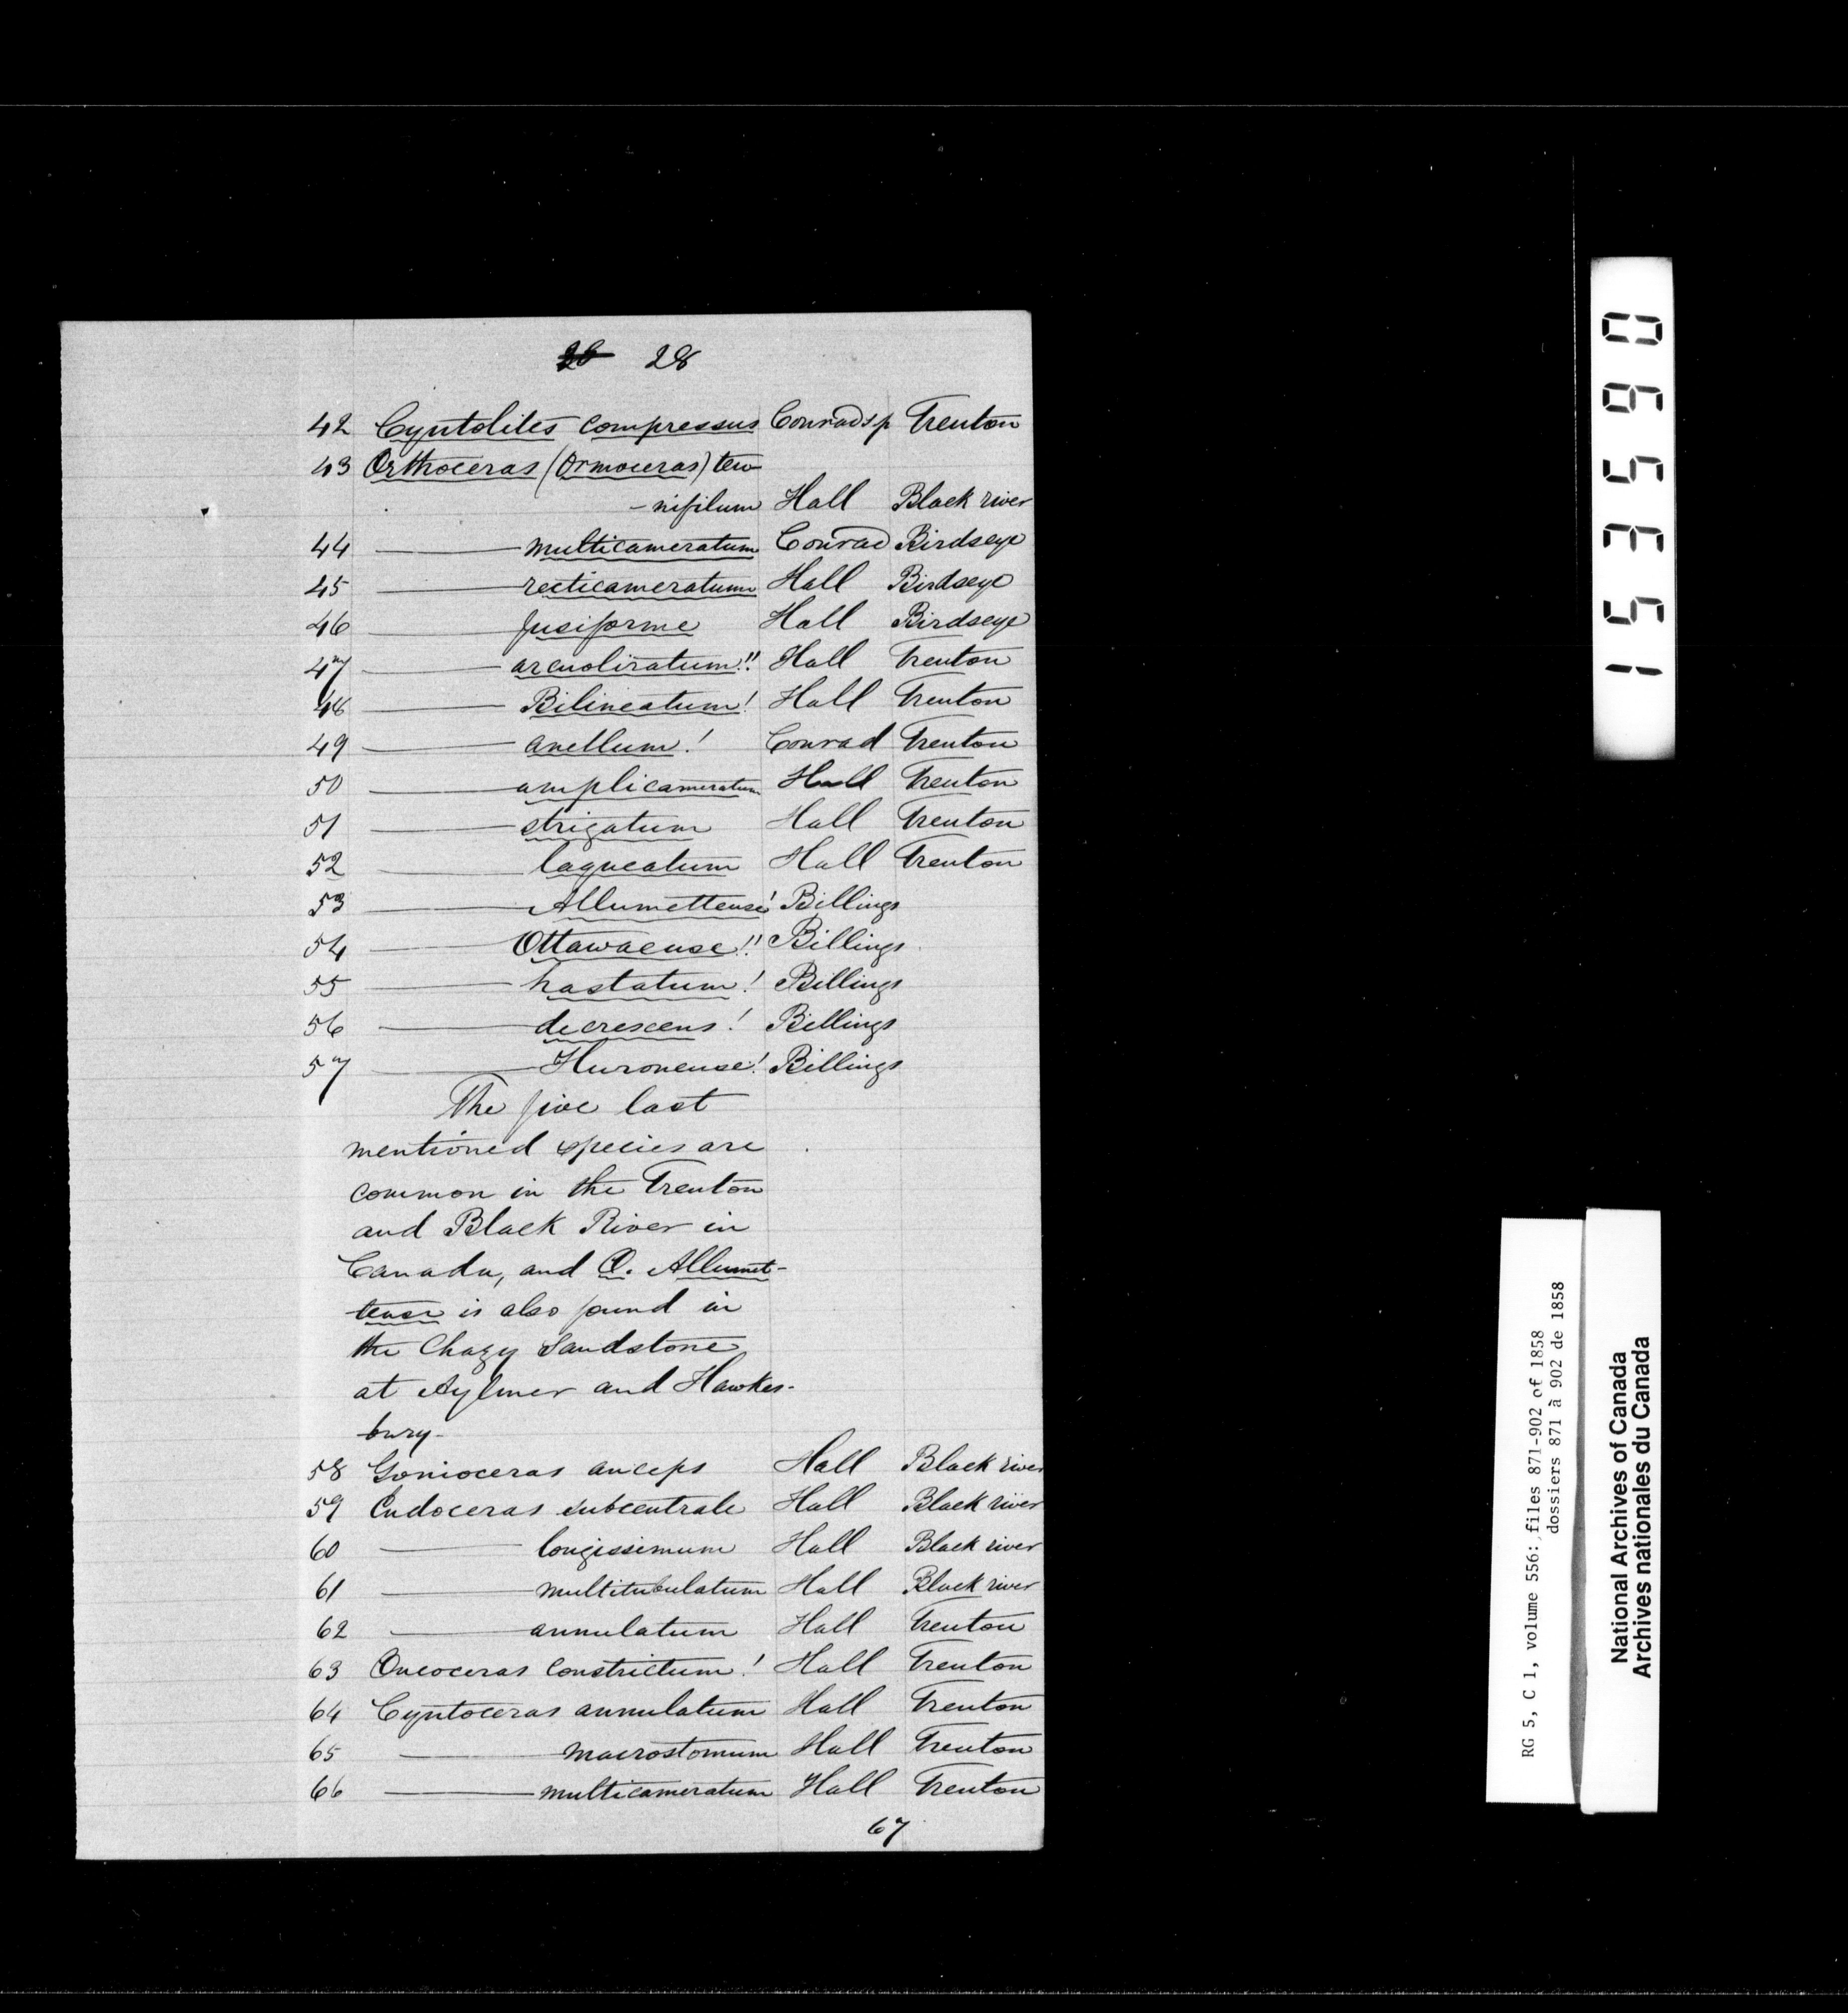 26 28
42 Cyrtolites compressus Conrad sp Trenton
43 Orthoceras (Ormoceras) ten
-nifilum Hall Black river
44 ——— multicameratum Conrad Birdseye
45 ——— recticameratum Hall Birdseye
46 ——— fusiforme Hall Birdseye
47 ——— arcuoliratum!! Hall Trenton
48 ——— Bilineatum! Hall Trenton
49 ——— anellum! Conrad Trenton
50 ——— amplicameratum Hall Trenton
51 ——— strigatum Hall Trenton
52 ——— laqueatum Hall Trenton
53 ——— Allumettense! Billings
54 ——— Ottawaense!! Billings
55 ——— hastatum! Billings
56 ——— decrescens! Billings
57 ——— Huronense! Billings
The five last
mentioned species are
common in the Trenton
and Black River in
Canada, and O. Allumet-
tense is also found in
the Chazy Sandstone
at Aylmer and Hawkes-
bury-
58 Gonioceras anceps Hall Black river
59 Endoceras subcentrale Hall Black river
60 ——— longissimum Hall Black river
61 ——— multitubulatum Hall Black river
62 ——— annulatum Hall Trenton
63 Oncoceras constrictum! Hall Trenton
64 Cyrtoceras annulatum Hall Trenton
65 ——— macrostomum Hall Trenton
66 ——— multicameratum Hall Trenton
67
153590
RG 5, C 1, volume 556: files 871-902 of 1858
dossiers 871 à 902 de 1858
National Archives of Canada
Archives nationales du Canada